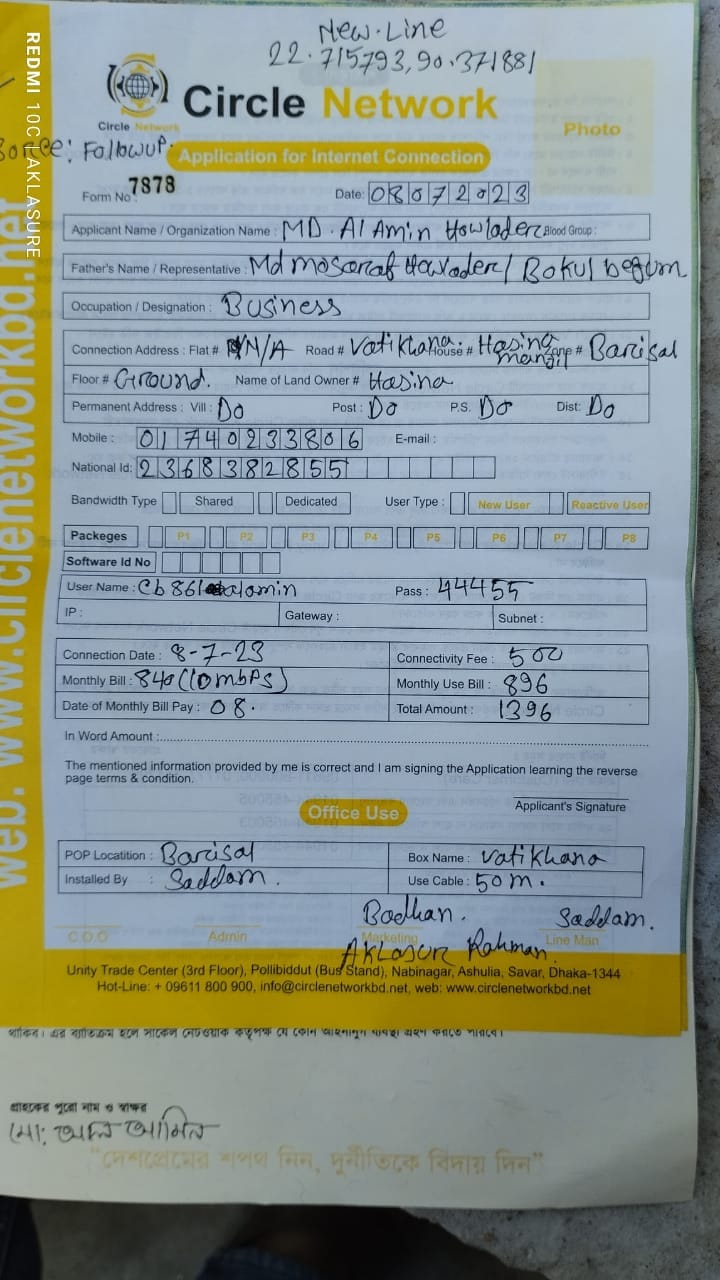 New Line
22.715793,90.371881
Circle Network
Circle Network
Photo
Followup.
Application for Internet Connection
Form No 7878
Date: 08072023
Applicant Name / Organization Name : MD. Al Amin Howlader Blood Group :
Father's Name / Representative : Md mosaraf Howlader / Bokul begum
Occupation / Designation : Business
Connection Address : Flat # N/A Road # Vatikhana House # Hasina manzil Zone # Barisal
Floor # Ground. Name of Land Owner # Hasina
Permanent Address : Vill : Do Post : Do P.S. Do Dist: Do
Mobile : 01740233806 E-mail :
National Id: 2368382855
Bandwidth Type Shared Dedicated User Type : New User Reactive User
Packeges P1 P2 P3 P4 P5 P6 P7 P8
Software Id No
User Name : Cb861alamin Pass : 44455
IP : Gateway : Subnet :
Connection Date : 8-7-23 Connectivity Fee : 500
Monthly Bill : 840 (10mbps) Monthly Use Bill : 896
Date of Monthly Bill Pay : 08. Total Amount : 1396
In Word Amount :
The mentioned information provided by me is correct and I am signing the Application learning the reverse
page terms & condition.
Applicant's Signature
Office Use
POP Locatition : Barisal Box Name : Vatikhana
Installed By : Saddam. Use Cable : 50 m.
Badhan. Saddam.
C.O.O Admin Marketing Line Man
Aklasur Rahman.
Unity Trade Center (3rd Floor), Pollibiddut (Bus Stand), Nabinagar, Ashulia, Savar, Dhaka-1344
Hot-Line: + 09611 800 900, info@circlenetworkbd.net, web: www.circlenetworkbd.net
web: www.circlenetworkbd.net
REDMI 10C | AKLASURE
থাকিব। এর ব্যতিক্রম হলে সার্কেল নেটওয়ার্ক কতৃপক্ষ যে কোন আইনানুগ ব্যবস্থা গ্রহণ করতে পারবে।
গ্রাহকের পুরো নাম ও স্বাক্ষর
মো: আল আমিন
"দেশপ্রেমের শপথ নিন, দুর্নীতিকে বিদায় দিন"